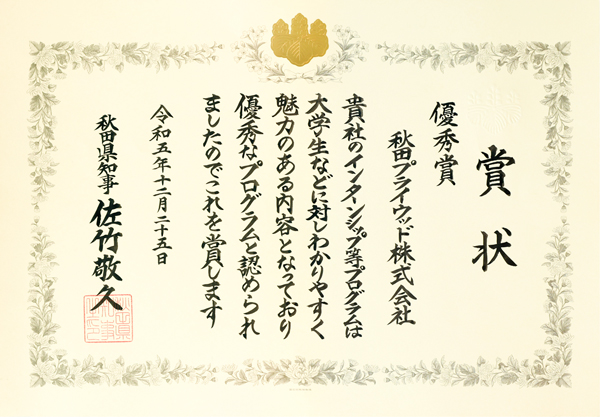 賞状
優秀賞
秋田プライウッド株式会社
貴社のインターンシップ等プログラムは
大学生などに対しわかりやすく
魅力のある内容となっており
優秀なプログラムと認められ
ましたのでこれを賞します
令和五年十二月二十五日
秋田県知事 佐竹敬久